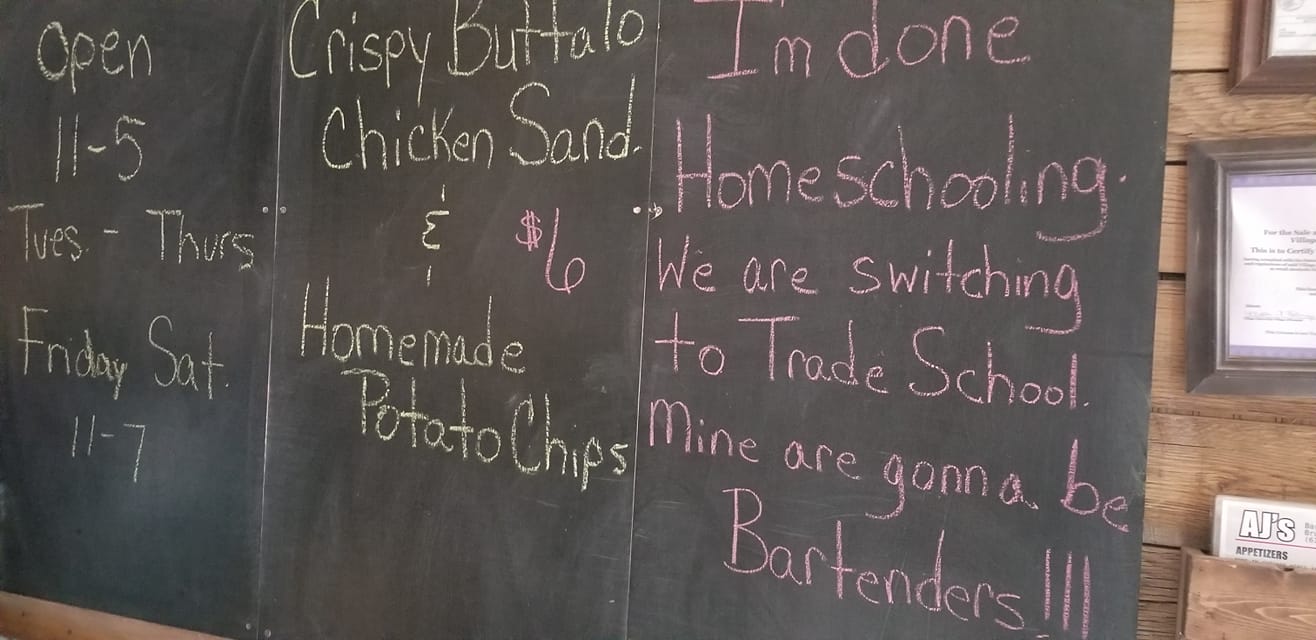 Open
11-5
Tues. - Thurs
Friday Sat.
11-7
Crispy Buffalo
Chicken Sand.
&
$6
Homemade
Potato Chips
I'm done
Homeschooling.
We are switching
to Trade School.
Mine are gonna be
Bartenders!!!
For the Sale
Village
This is to Certify
AJ'S
APPETIZERS